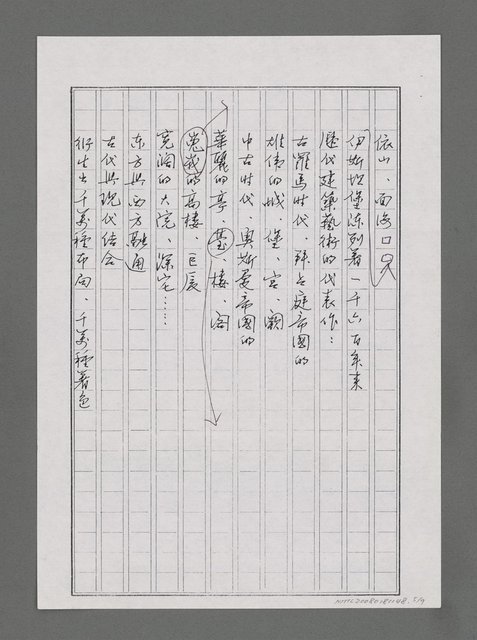 依山、面海
伊斯坦堡陈列着一千六百年来
歷代建築藝術的代表作：
古羅馬时代、拜占庭帝國的
雄偉的城、堡、宫、殿
中古时代、奥斯曼帝國的
華麗的亭、台、楼、阁
嵬峩的高楼 巨厦
宽阔的大院、深宅……
东方與西方融通
古代與现代结合
衍生出千萬種布局、千萬種着色